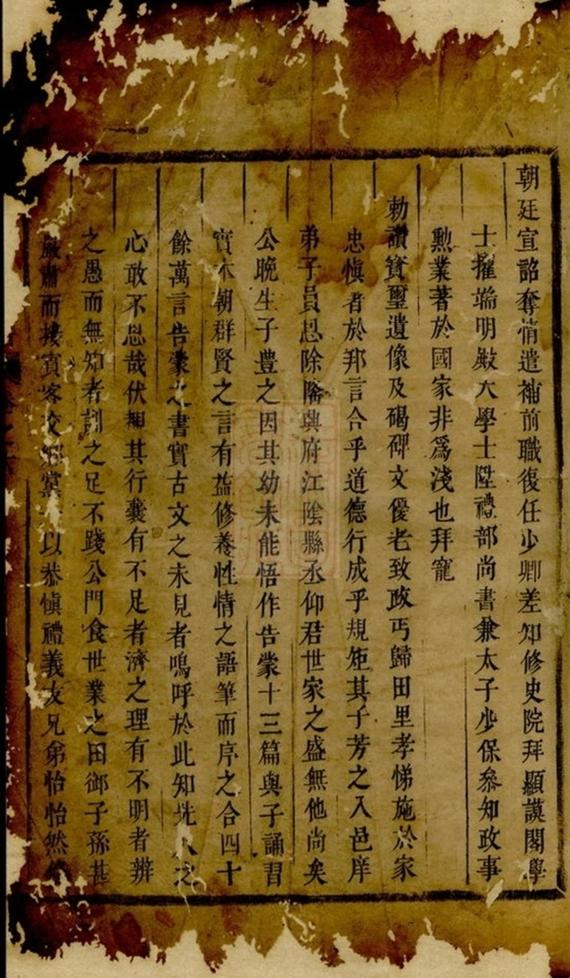 朝廷宣詔奪情遣補前職復任少卿差知修史院拜顯謨閣學
士擢端明殿大學士陞禮部尚書兼太子少保叅知政事
勲業著於國家非爲淺也拜寵
勅讚賓璽遺像及碣碑文優老致政丐歸田里孝悌施於家
忠愼者於邦言合乎道德行成乎規矩其子芳之入邑庠
弟子員恩除隆興府江陰縣丞仰君世家之盛無他尚矣
公晚生子豊之因其幼未能悟作告蒙十三篇與子誦習
實本朝群賢之言有益修養性情之語筆而序之合四十
餘萬言告蒙之書實古文之未見者嗚呼於此知先人之
心敢不思哉伏神其行囊有不足者濟之理有不明者辨
之愚而無知者訓之足不踐公門食世業之田御子孫甚
嚴肅而接賓客交鄉黨以恭愼禮義友兄弟怡怡然